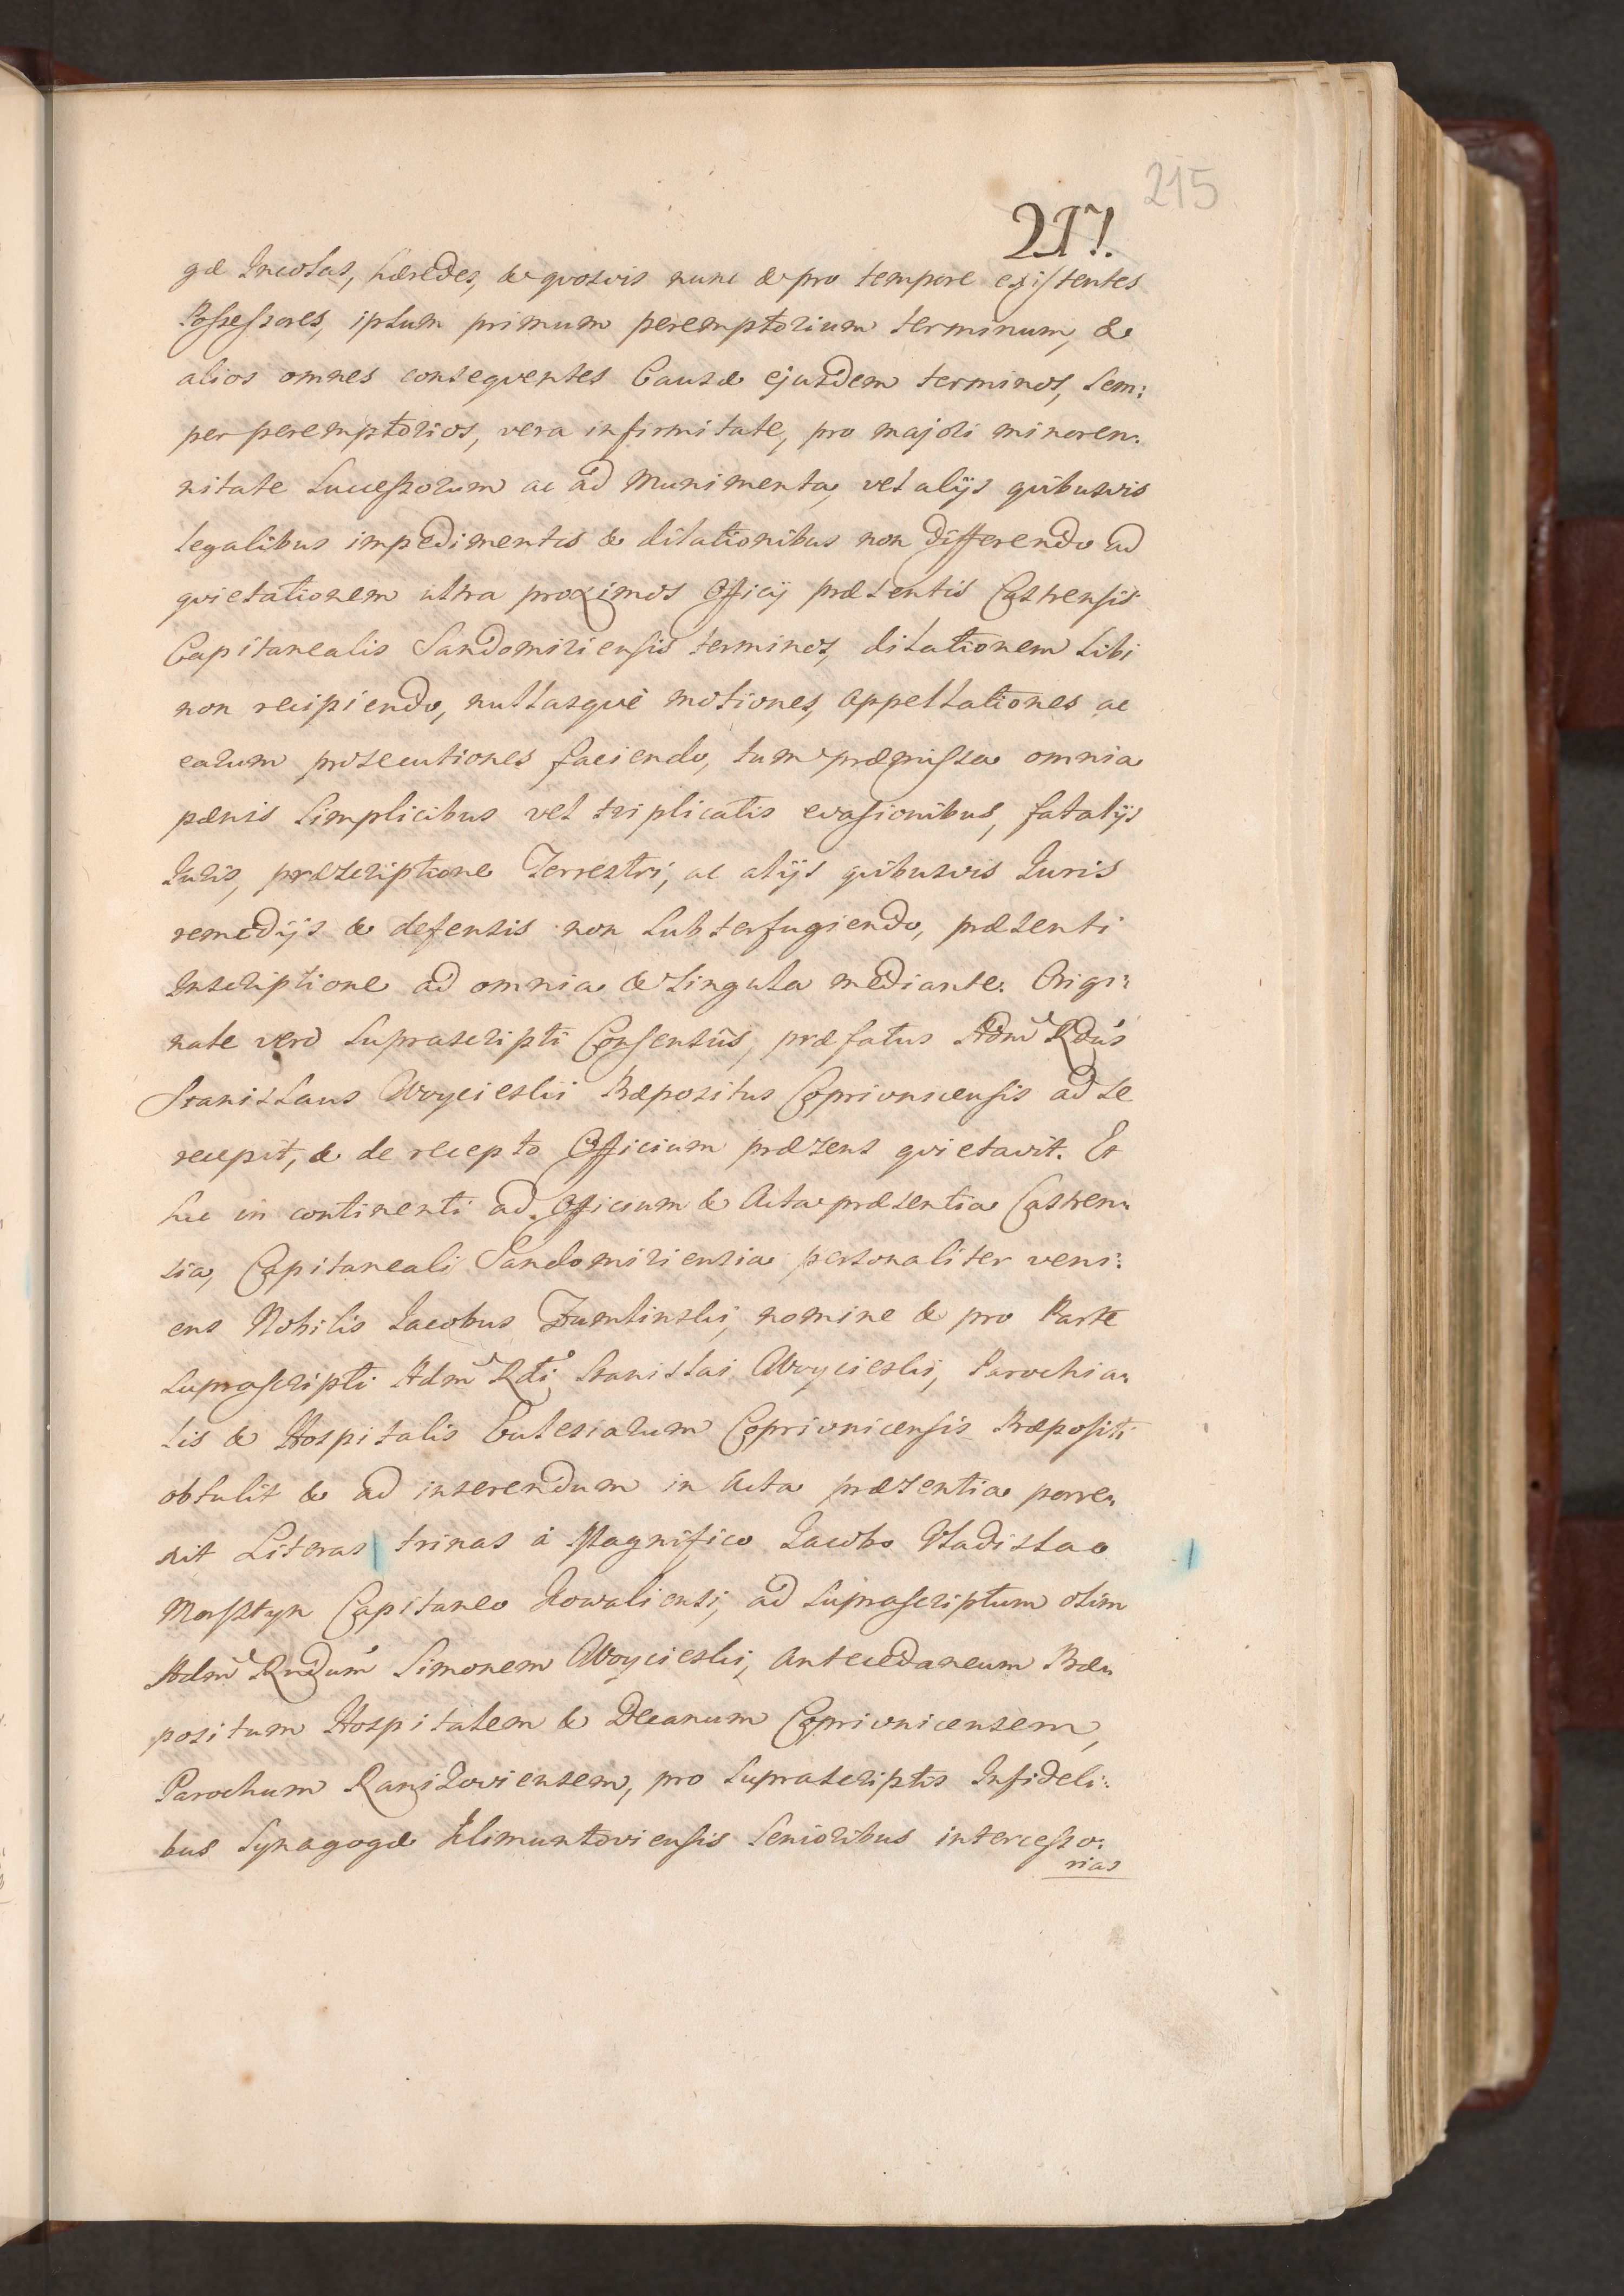 215
217.
gæ Incolas, hæredes, & quosvis nunc & pro tempore existentes
Possessores, ipsum primum peremptorium terminum, &
alios omnes consequentes Causæ ejusdem terminos, sem:
per peremptorios, vera infirmitate, pro majori minoren:
nitate Successorum ac ad Munimenta, vel alijs quibusvis
legalibus impedimentis & dilationibus non differendo ad
quietationem ultra proximos Officij præsentis Castrensis
Capitanealis Sandomiriensis terminos, dilationem sibi
non recipiendo, nullasque motiones, appellationes ac
earum prosecutiones faciendo, tum præmissa omnia
pœnis simplicibus vel triplicatis evasionibus, fatalijs
Juris, præscriptione Terrestri, ac alijs quibusvis Juris
remedijs & defensis non subterfugiendo, præsenti
Inscriptione ad omnia & singula mediante. Origi:
nale vero suprascripti Consensûs, præfatus Adm Rdus
Stanislaus Woycieski Præpositus Coprivnicensis ad se
recepit, & de recepto Officium præsens quietavit. Et
hic in continenti ad Officium & Acta præsentia Castren:
sia, Capitaneali Sandomiriensia personaliter veni:
ens Nobilis Jacobus Zumlinski, nomine & pro Parte
suprascripti Adm Rdi Stanislai Woycieski, Parochia:
lis & Hospitalis Ecclesiarum Coprivnicensis Præpositi
obtulit & ad inserendum in Acta præsentia porre:
xit Literas trinas à Magnifico Jacobo Vladislao
Morsztyn Capitaneo Kowaliensi, ad suprascriptum olim
Adm Rndum Simonem Woycieski, Antecedaneum Præ:
positum Hospitalem & Decanum Coprivnicensem,
Parochum Ranizoviensem, pro suprascriptis Infideli:
bus Synagogæ Klimuntoviensis Senioribus intercesso:
rias